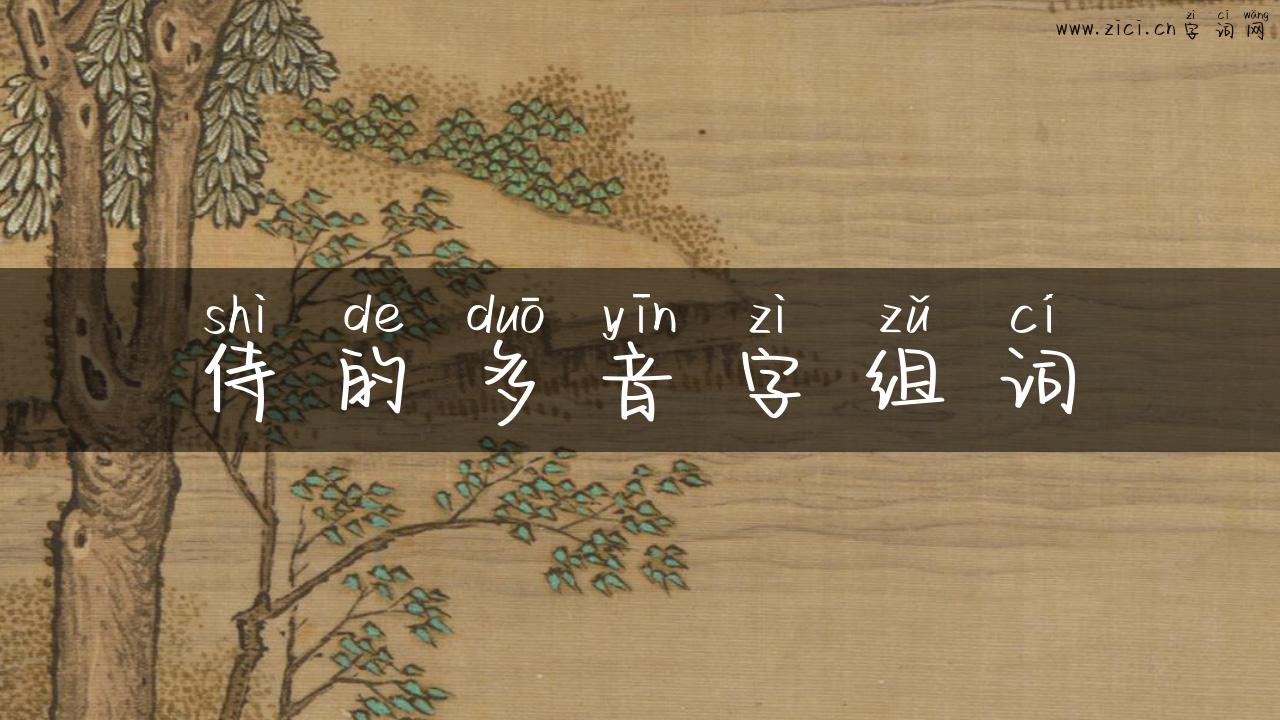 zì cí wǎng
www.zici.cn 字 词 网
shì de duō yīn zì zǔ cí
侍 的 多 音 字 组 词